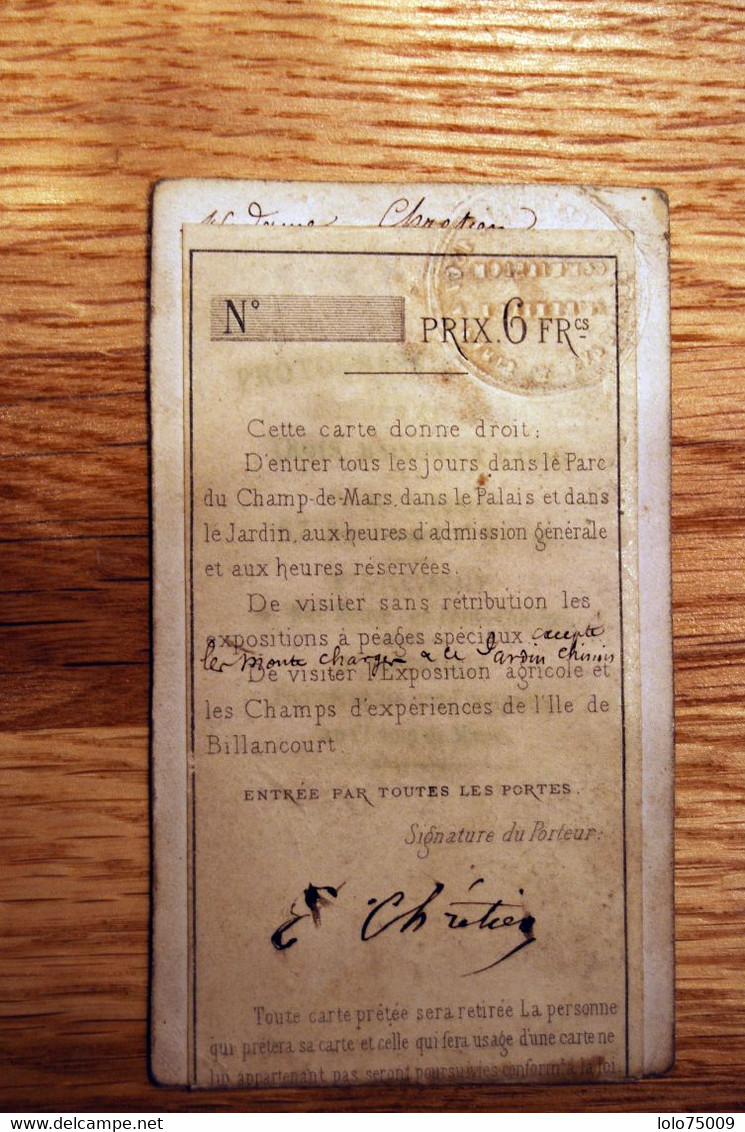 Madame Chretien
N° PRIX. 6 FRcs
Cette carte donne droit:
D'entrer tous les jours dans le Parc
du Champ-de-Mars, dans le Palais et dans
le Jardin, aux heures d'admission générale
et aux heures réservées.
De visiter sans rétribution les
expositions à péages spéciaux. excepté
les monte charges & le Jardin chinois
De visiter l'Exposition agricole et
les Champs d'expériences de l'Ile de
Billancourt.
ENTRÉE PAR TOUTES LES PORTES.
Signature du Porteur:
E Chrétien
Toute carte prêtée sera retirée La personne
qui prêtera sa carte et celle qui fera usage d'une carte ne
lui appartenant pas seront poursuivies conformt à la loi.
Delcampe.net
lolo75009